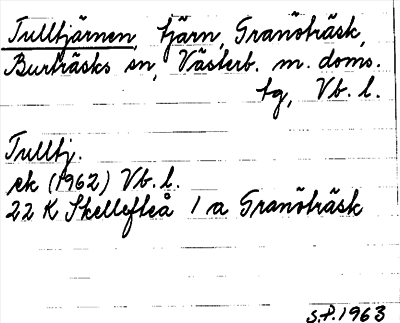 Tulltjärnen, tjärn, Granöträsk,
Burträsks sn, Västerb. m. doms.
tg, Vb. l.
Tulltj.
ek (1962) Vb. l.
22 K Skellefteå 1 a Granöträsk
S.P. 1963